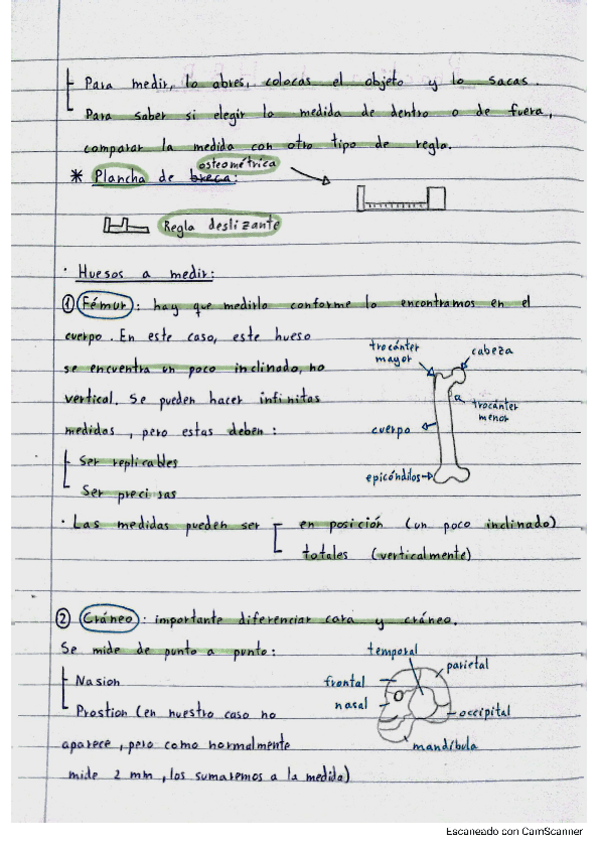 Para medir, lo abres, colocas el objeto y lo sacas.
Para saber si elegir la medida de dentro o de fuera,
comparar la medida con otro tipo de regla.
osteométrica
* Plancha de breca:
Regla deslizante
· Huesos a medir:
① Fémur: hay que medirlo conforme lo encontramos en el
cuerpo. En este caso, este hueso
se encuentra un poco inclinado, no
vertical. Se pueden hacer infinitas
medidas, pero estas deben:
Ser replicables
Ser precisas
trocánter
mayor
cabeza
trocánter
menor
cuerpo
epicóndilos
· Las medidas pueden ser
en posición (un poco inclinado)
totales (verticalmente)
② Cráneo: importante diferenciar cara y cráneo.
Se mide de punto a punto:
Nasion
Prostion (en nuestro caso no
aparece, pero como normalmente
mide 2 mm, los sumaremos a la medida)
temporal
parietal
frontal
nasal
occipital
mandíbula
Escaneado con CamScanner